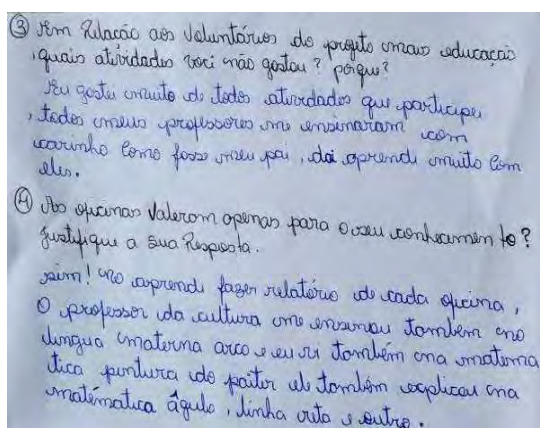 ③ Em Relação aos Voluntários do projeto mais educação
, quais atividades você não gostou? porque?
Eu gostei muito de todos atividades que participei
, todos meus professores me ensinaram com
carinho como fosse meu pai, daí aprendi muito com
eles.
④ As oficinas Valeram apenas para o seu conhecimento?
Justifique a sua Resposta.
sim! no aprendi fazer relatório de cada oficina,
O professor da cultura me ensinou também no
língua materna arco e eu vi também na matema
tica pintura do paiter ele também explicou na
matématica âgulo, linha reta e outro.